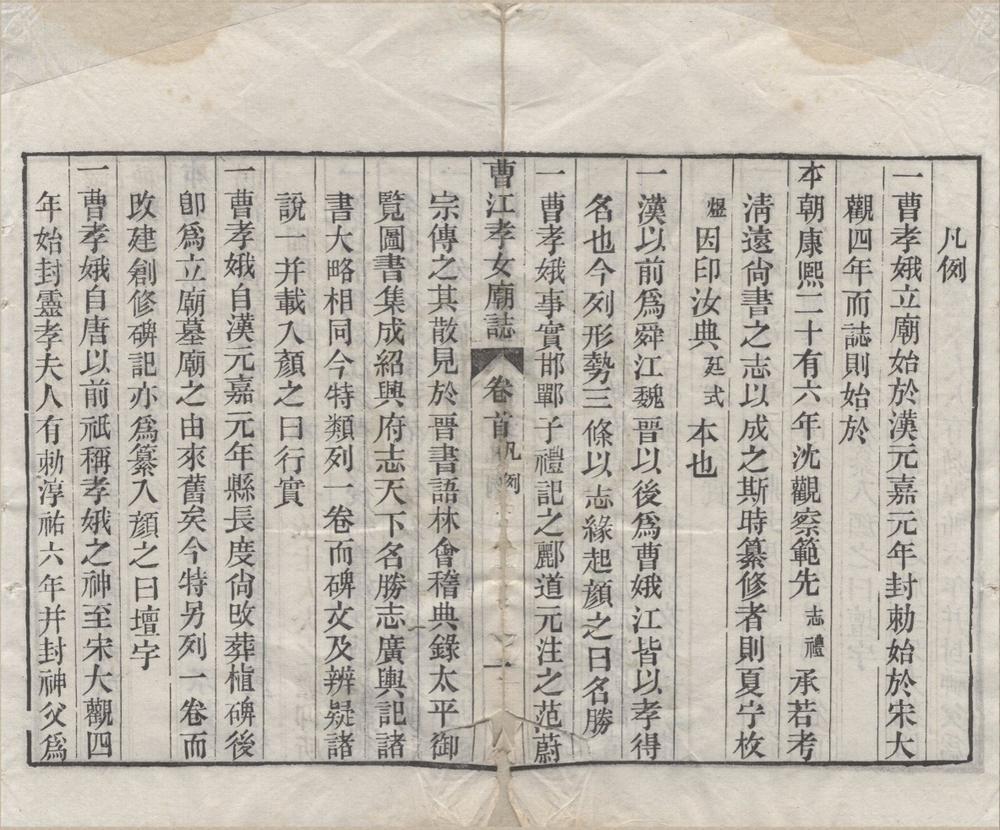 凡例
一曹孝娥立廟始於漢元嘉元年封勅始於宋大
觀四年而誌則始於
本朝康熙二十有六年沈觀察範先志禮承若考
清遠尙書之志以成之斯時纂修者則夏宁枚
煜因印汝典廷式本也
一漢以前爲舜江魏晋以後爲曹娥江皆以孝得
名也今列形勢三條以志緣起顔之曰名勝
一曹孝娥事實邯鄲子禮記之酈道元注之范蔚
曹江孝女廟誌 卷首凡例 一
宗傳之其散見於晋書語林會稽典錄太平御
覽圖書集成紹興府志天下名勝志廣輿記諸
書大略相同今特類列一卷而碑文及辨疑諸
說一并載入顔之曰行實
一曹孝娥自漢元嘉元年縣長度尙改葬植碑後
卽爲立廟墓廟之由來舊矣今特另列一卷而
改建創修碑記亦爲纂入顔之曰壇宇
一曹孝娥自唐以前祇稱孝娥之神至宋大觀四
年始封靈孝夫人有勅淳祐六年并封神父爲